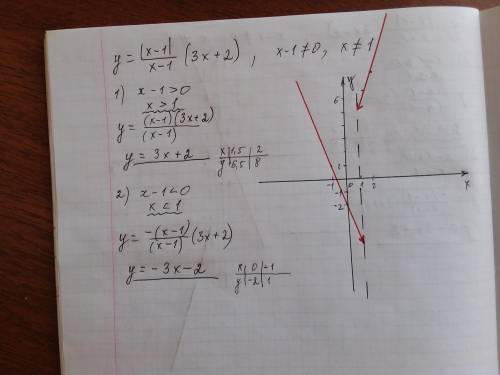 y = |x-1|/(x-1) (3x+2), x-1≠0, x≠1
1) x-1>0
x>1
y = (x-1)(3x+2)/(x-1)
y = 3x+2
x | 1,5 | 2
y | 6,5 | 8
2) x-1<0
x<1
y = -(x-1)/(x-1) (3x+2)
y = -3x-2
x | 0 | -1
y | -2 | 1
y
6
1
-1 0 1 2
x
-1
-2